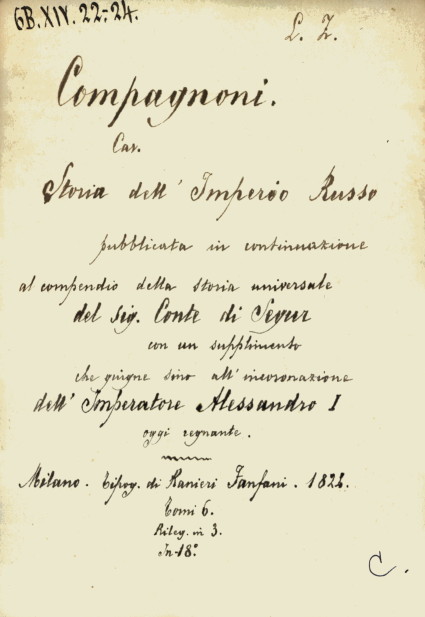 6B.XIV.22-24.
L. Z.
Compagnoni.
Cav.
Storia dell' Imperio Russo
pubblicata in continuazione
al compendio della storia universale
del Sig. Conte di Segur
con un supplimento
che giugne sino all' incoronazione
dell' Imperatore Alessandro I
oggi regnante.
Milano. Tipog. di Ranieri Fanfani. 1824.
Tomi 6.
Rileg. in 3.
In-18°
C.